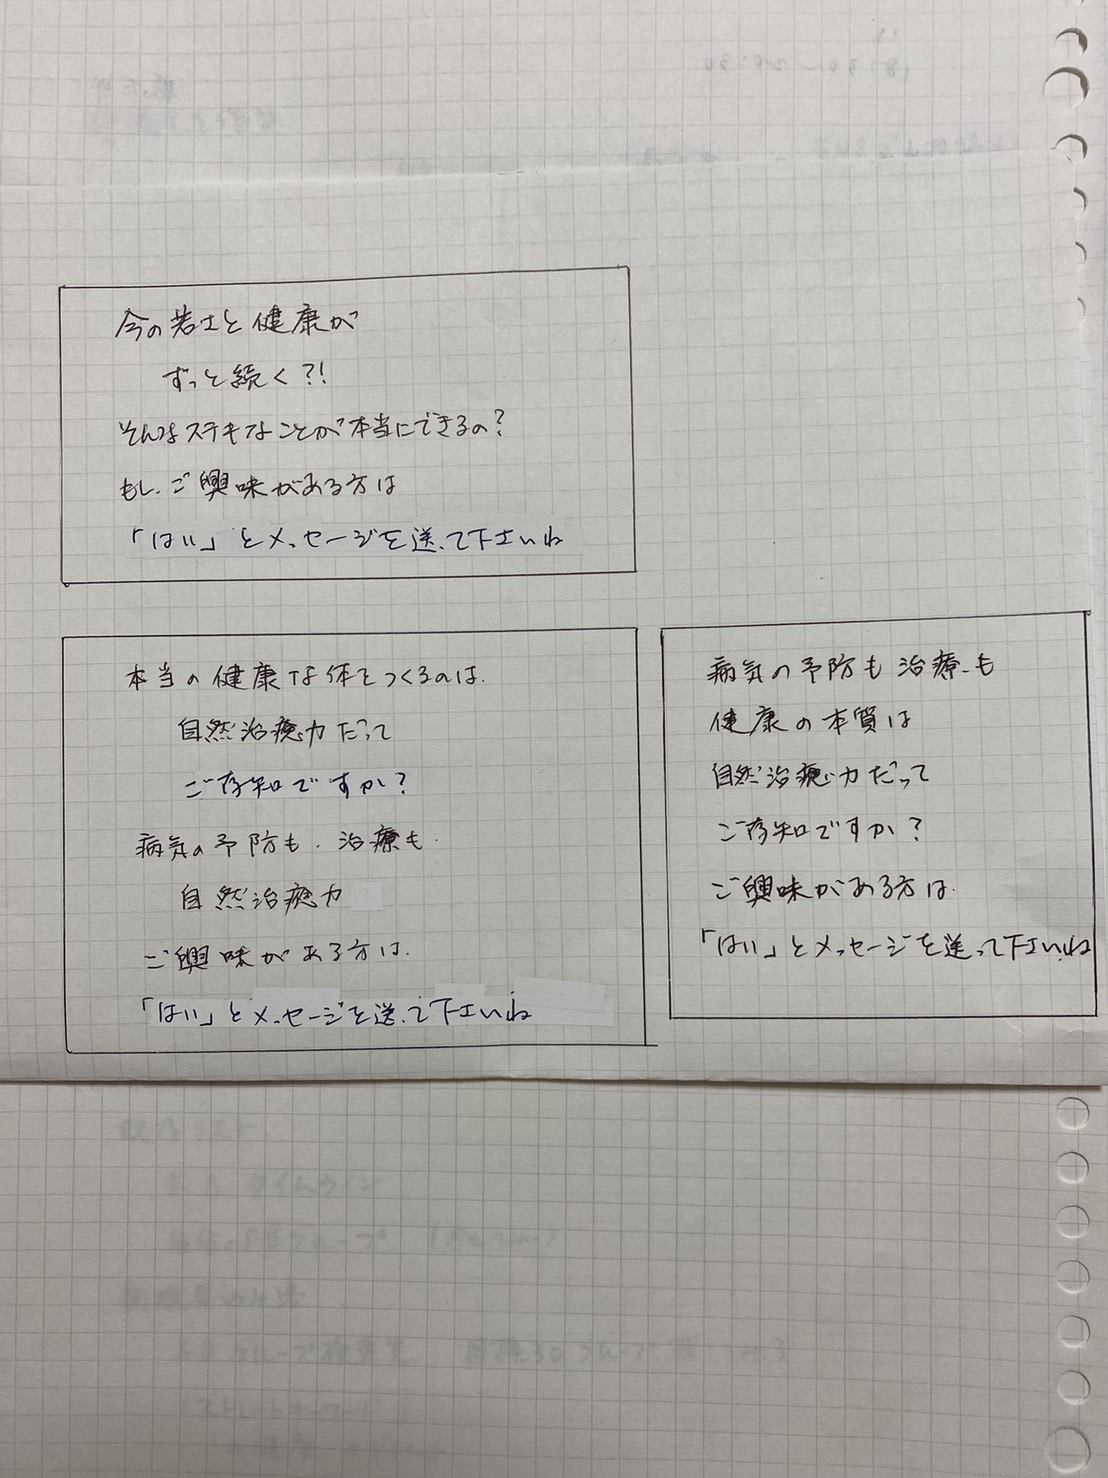 今の若さと健康が
ずっと続く?!
そんなステキなことが本当にできるの?
もし、ご興味がある方は
「はい」とメッセージを送って下さいね
本当の健康な体をつくるのは、
自然治癒力だって
ご存知ですか?
病気の予防も、治療も、
自然治癒力
ご興味がある方は、
「はい」とメッセージを送って下さいね
病気の予防も治療も
健康の本質は
自然治癒力だって
ご存知ですか?
ご興味がある方は、
「はい」とメッセージを送って下さいね